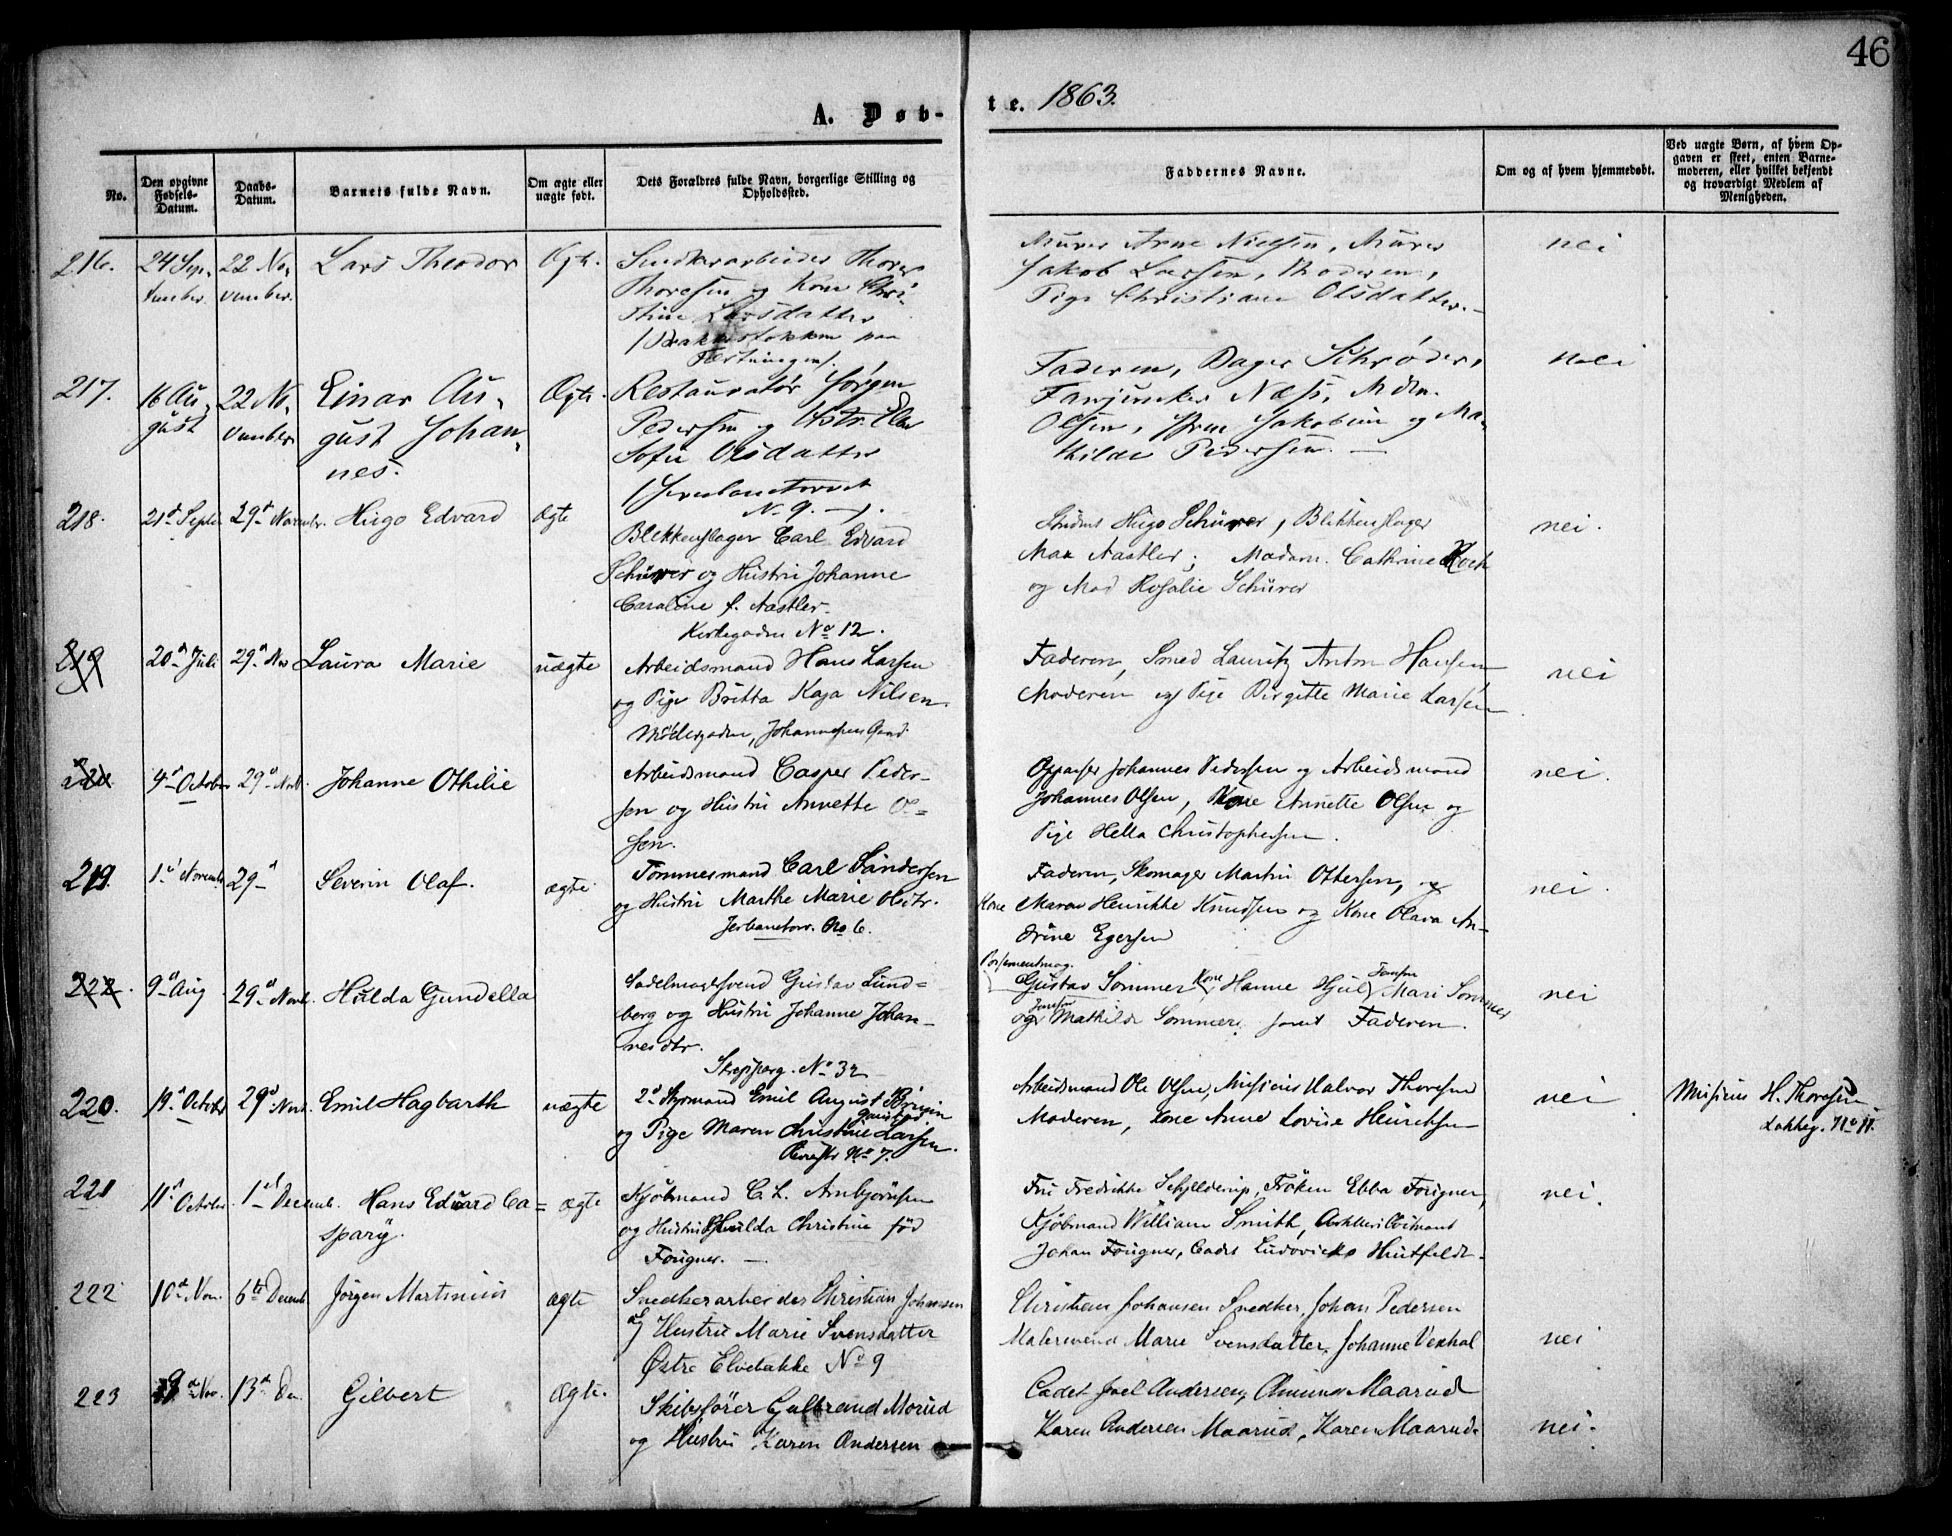 46
A. Døb-
te. 1863.
No.
Den opgivne Fødsels-Datum.
Daabs-Datum.
Barnets fulde Navn.
Om ægte eller uægte født.
Dets Forældres fulde Navn, borgerlige Stilling og Opholdssted.
Faddernes Navne.
Om og af hvem hjemmedøbt.
Ved uægte Børn, af hvem Opgaven er skeet, enten Barnemoderen, eller hvilket bekjendt og troværdigt Medlem af Menigheden.
216. 24 Sep- 22 No- Lars Theodor Ægte. Snedkerarbeider Thorer
tember. vember.
Thoresen og Kone Chri-
stine Larsdatter
paa
Fæstningen.
Murer Arne Nielsen, Murer nei
Jakob Larsen, Moderen,
Pige Christiane Olsdatter.
217. 16 Au- 22 No- Einar Au- Ægte. Restauratør Jørgen
gust vember gust Johan- Pedersen og
nes. Sofie Olsdatter
No 9.
Faderen, Bager Schrøder, nei
Næss, Mdm.
Olsen, Jakobine og Ma-
thilde Pedersen.
218. 21d Septbr 29d Novembr. Hugo Edvard Ægte
Blikkenslager Carl Edvard
Schürer og Hustru Johanne
Caroline f. Nastler.
Kirkegaden No 12.
Hugo Schürer, Blikkenslager nei.
Max Nastler; Madam. Cathrine Koch
og Mad Rosalie Schürer
219 20d Juli 29d Nov Laura Marie uægte Arbeidsmand Hans Larsen
og Pige Britta Kaja Nilsen.
Møllergaden, Johannesens Gaard
Faderen, Smed Lauritz Anton Hansen nei
Moderen og Pige Birgitte Marie Larsen
220 4d October 29d Novb. Johanne Othilie
Arbeidsmand Casper Peder-
sen og Hustru Annette Ol-
sen.
Oppasser Johannes Pedersen og Arbeidsmand nei.
Johannes Olsen, Kone Annette Olsen og
Pige Hella Christophersen.
219. 1d Novemb 29d Severin Olaf. ægte
Tømmermand Carl Sandersen
og Hustru Marthe Marie Olsdtr.
Jerbanetorv. No 6.
Faderen, Skomager Martin Ottersen, og nei.
Kone Maren Henrikke Knudsen og Kone Olava An-
drine Egersen
222. 9d Aug 29d Novb. Hulda Gundella
Sadelmagersvend Gustav Lund-
berg og Hustru Johanne Johan-
nesdtr.
No 32
Possementmag.
Gustav Sommer Kone Hanne Hjul Jomfru Mari Sommer nei
og Jomfru Mathilde Sommer, samt Faderen.
220. 19d October 29d Novb. Emil Hagbarth uægte 2d Styrmand Emil August
og Pige Maren Christine Larsen.
No 7.
Arbeidsmand Ole Olsen, Musicus Halvor Thoresen nei
Moderen, Kone Anne Lovise Henriksen
Musicus H. Thoresen
Lakkeg. No 11.
221 11d October 1d Decemb. Hans Eduard Ca- ægte
spary.
Kjøbmand C. L. Ambjørnsen
og Hustru Hulda Christine fød
Fougner.
Fru Fredrikke Schjelderup, Frøken Ebba Fougner, nei.
Kjøbmand William Smith, Artilleri Lieutnant
Johan Fougner, Cadet Ludovicko Huitfeldt.
222 10d Nov. 6te Decemb Jørgen Martinius ægte
Snedkerarbeider Christian Johansen
og Hustru Marie Svensdatter
Østre Elvebakke No 9
Christian Johansen Snedker, Johan Pedersen
Malersvend Marie Svensdatter, Johanne Vexhal nei
223 9d Nov. 13d De. Gilbert Ægte.
Skibsfører Gulbrand Morud
og Hustru Karen Andersen
Cadet Joel Andersen, Amund Maarud
Karen Andersen Maarud, Karen Maarud. nei.